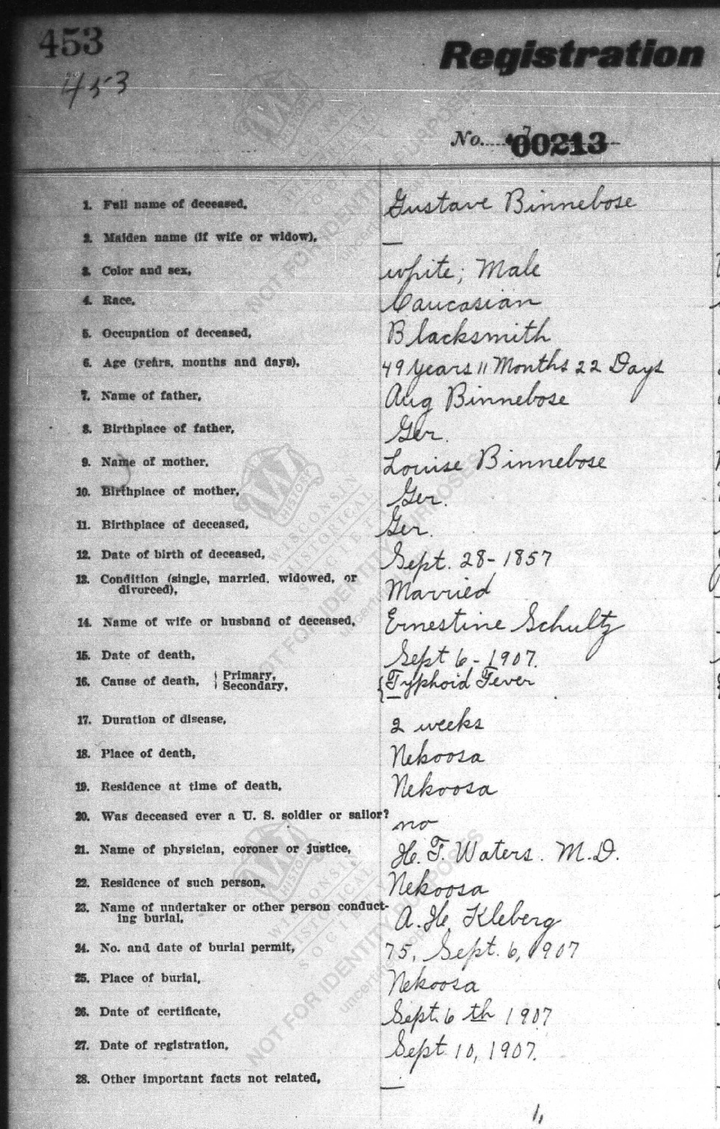 453
453
Registration
No. 00213
1. Full name of deceased, Gustave Binnebose
2. Maiden name (if wife or widow), —
3. Color and sex, white; Male
4. Race, Caucasian
5. Occupation of deceased, Blacksmith
6. Age (years, months and days), 49 years 11 Months 22 Days
7. Name of father, Aug Binnebose
8. Birthplace of father, Ger.
9. Name of mother, Louise Binnebose
10. Birthplace of mother, Ger.
11. Birthplace of deceased, Ger.
12. Date of birth of deceased, Sept. 28-1857
13. Condition (single, married, widowed, or
divorced), Married
14. Name of wife or husband of deceased, Ernestine Schultz
15. Date of death, Sept 6-1907.
16. Cause of death, { Primary, Typhoid Fever
Secondary, —
17. Duration of disease, 2 weeks
18. Place of death, Nekoosa
19. Residence at time of death, Nekoosa
20. Was deceased ever a U. S. soldier or sailor? no
21. Name of physician, coroner or justice, H. T. Waters. M.D.
22. Residence of such person, Nekoosa
23. Name of undertaker or other person conduct-
ing burial, A. H. Kleberg
24. No. and date of burial permit, 75, Sept. 6, 1907
25. Place of burial, Nekoosa
26. Date of certificate, Sept. 6 th 1907
27. Date of registration, Sept. 10, 1907.
28. Other important facts not related, —
WISCONSIN
HISTORICAL
SOCIETY
NOT FOR IDENTITY PURPOSES